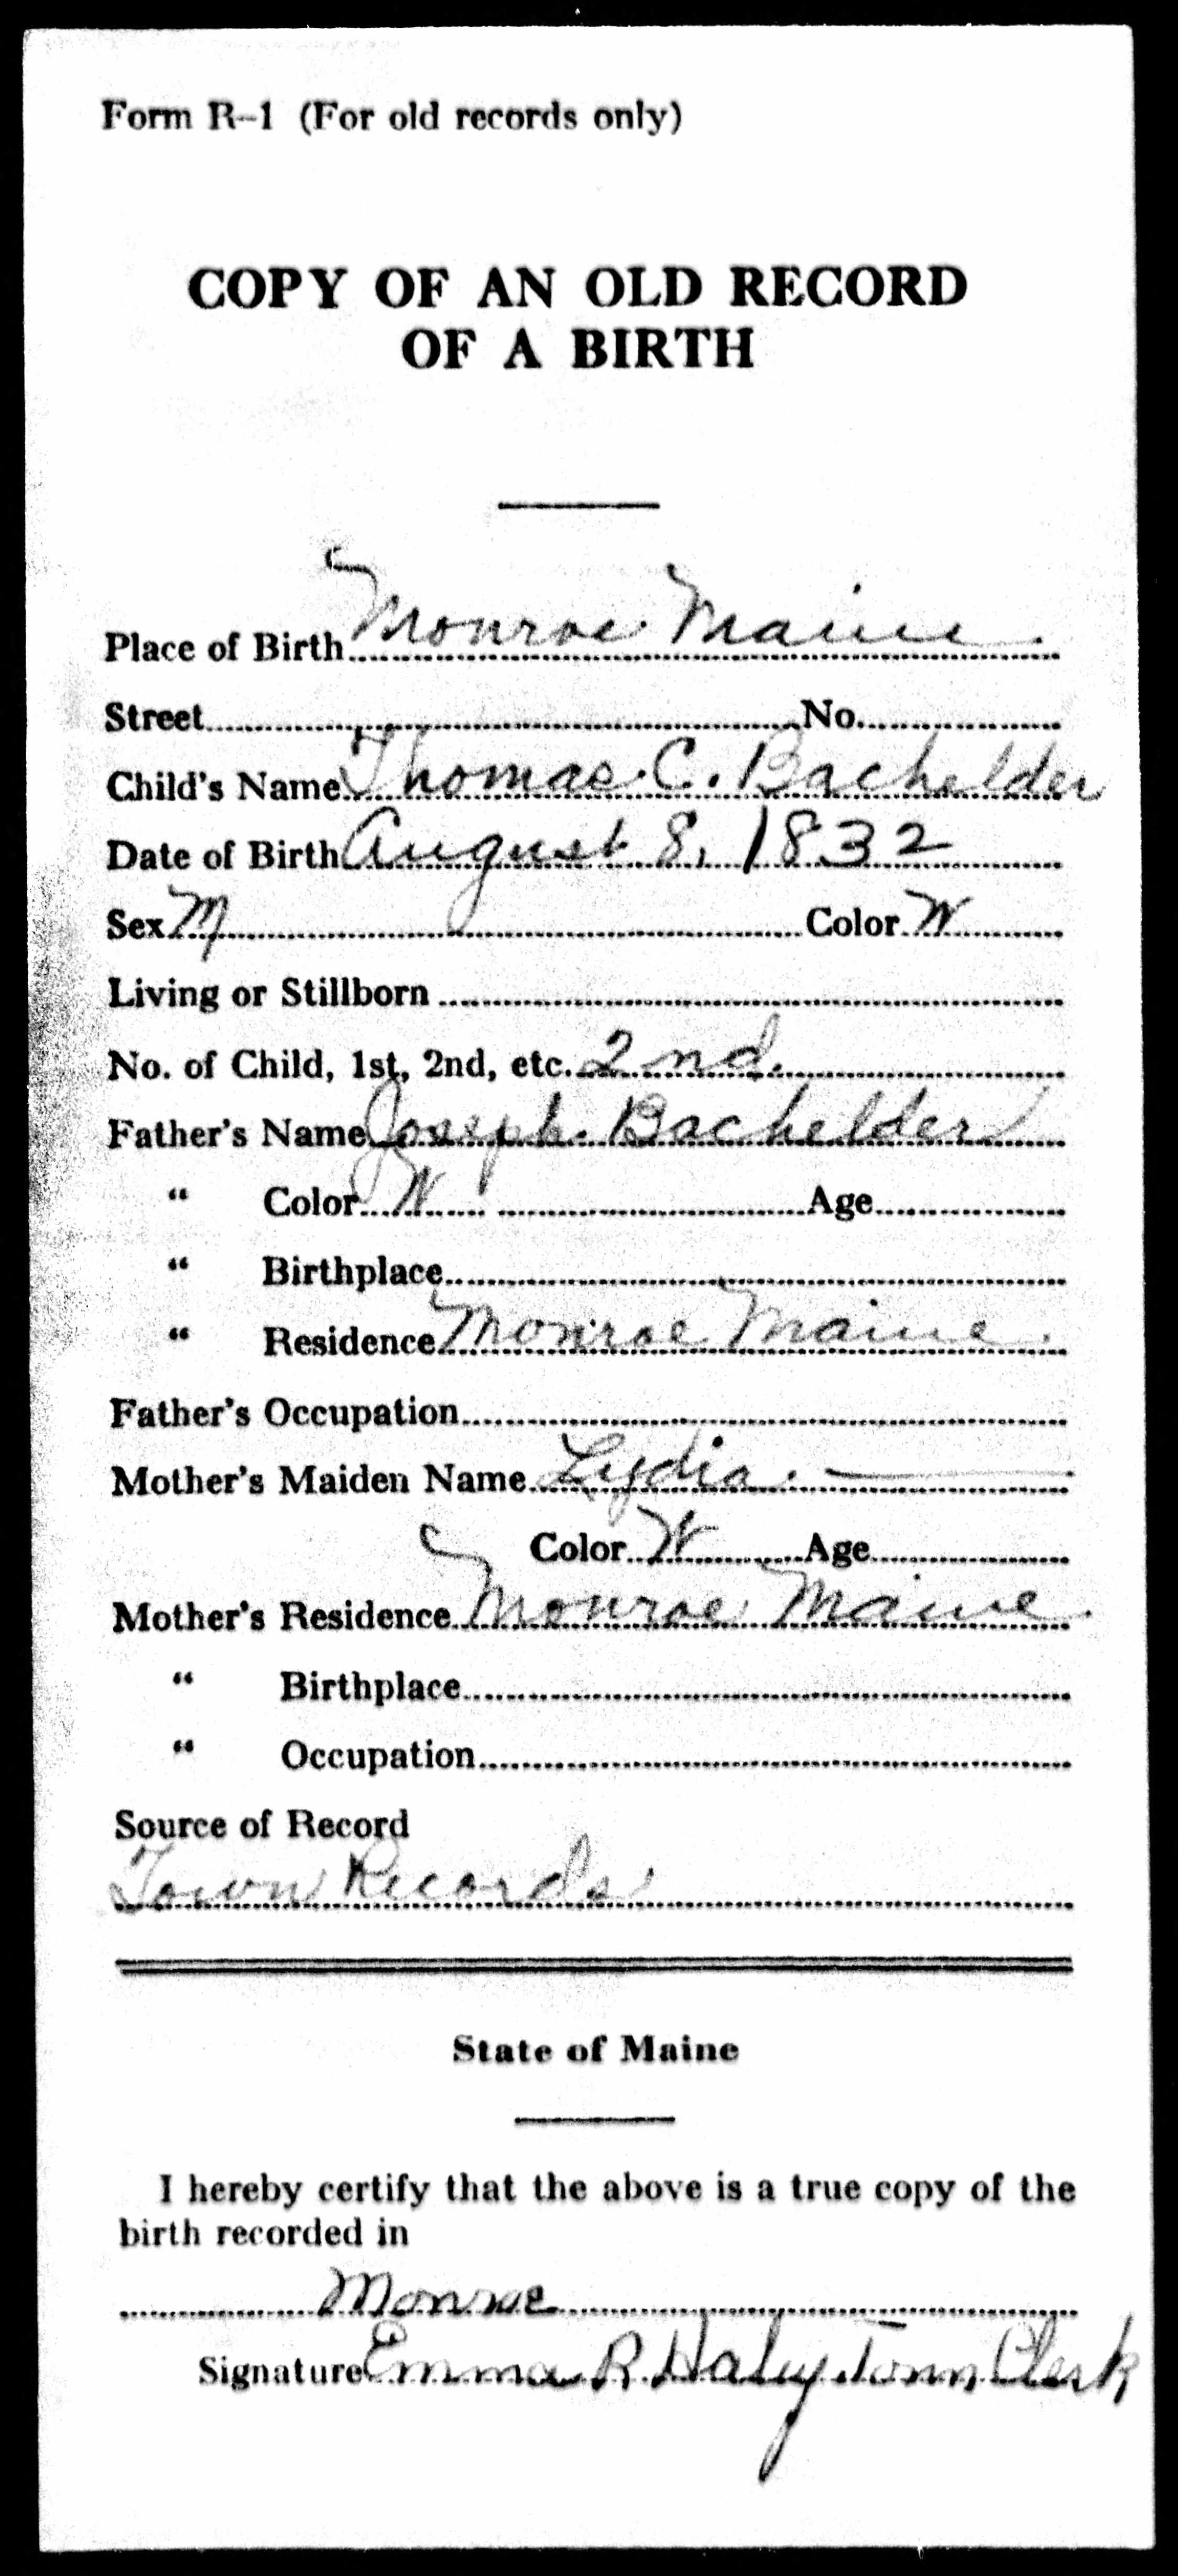 Form R-1 (For old records only)
COPY OF AN OLD RECORD
OF A BIRTH
Place of Birth Monroe Maine.
Street No.
Child's Name Thomas C. Bachelder
Date of Birth August 8, 1832
Sex M Color W
Living or Stillborn
No. of Child, 1st, 2nd, etc. 2nd.
Father's Name Joseph Bachelder
" Color W Age
" Birthplace
" Residence Monroe Maine.
Father's Occupation
Mother's Maiden Name Lydia. —
Color W Age
Mother's Residence Monroe Maine.
" Birthplace
" Occupation
Source of Record
Town Records
State of Maine
I hereby certify that the above is a true copy of the
birth recorded in
Monroe
Signature Emma R. Haley Town Clerk